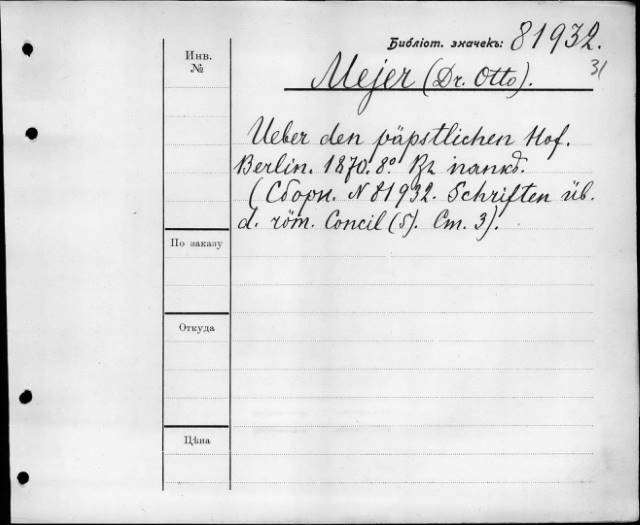 Библіот. значекъ: 81932.
31
Инв.
№
Mejer (Dr. Otto).
Ueber den päpstlichen Hof.
Berlin. 1870. 8º. Въ папкѣ.
(Сборн. N 81932. Schriften üb.
d. röm. Concil (5). Ст. 3).
По заказу
Откуда
Цѣна